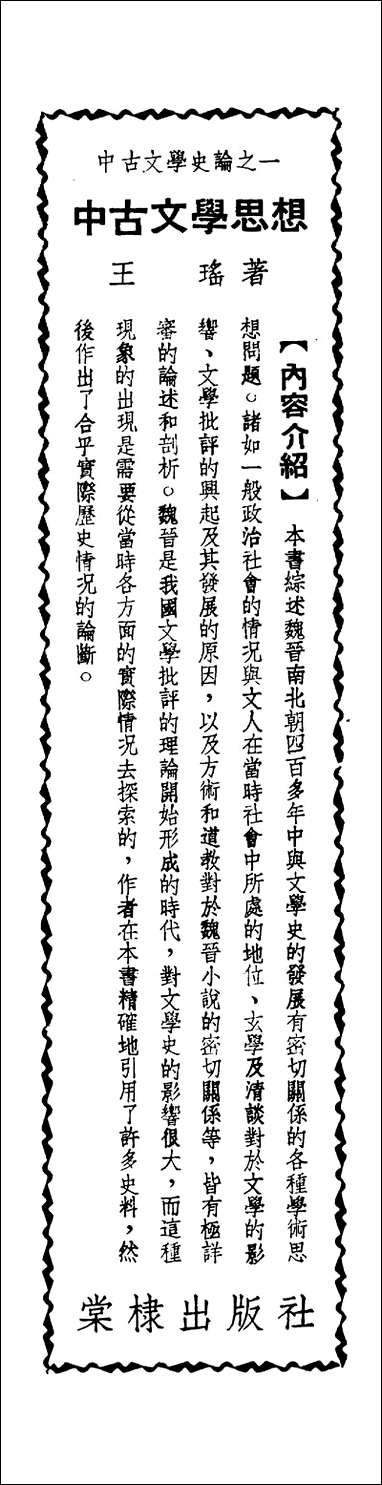 中古文學史論之一
中古文學思想
王瑤著
【內容介紹】 本書綜述魏晉南北朝四百多年中與文學史的發展有密切關係的各種學術思
想問題。諸如一般政治社會的情況與文人在當時社會中所處的地位、玄學及清談對於文學的影
響、文學批評的興起及其發展的原因，以及方術和道教對於魏晉小說的密切關係等，皆有極詳
審的論述和剖析。魏晉是我國文學批評的理論開始形成的時代，對文學史的影響很大，而這種
現象的出現是需要從當時各方面的實際情况去探索的，作者在本書精確地引用了許多史料，然
後作出了合乎實際歷史情况的論斷。
棠棣出版社